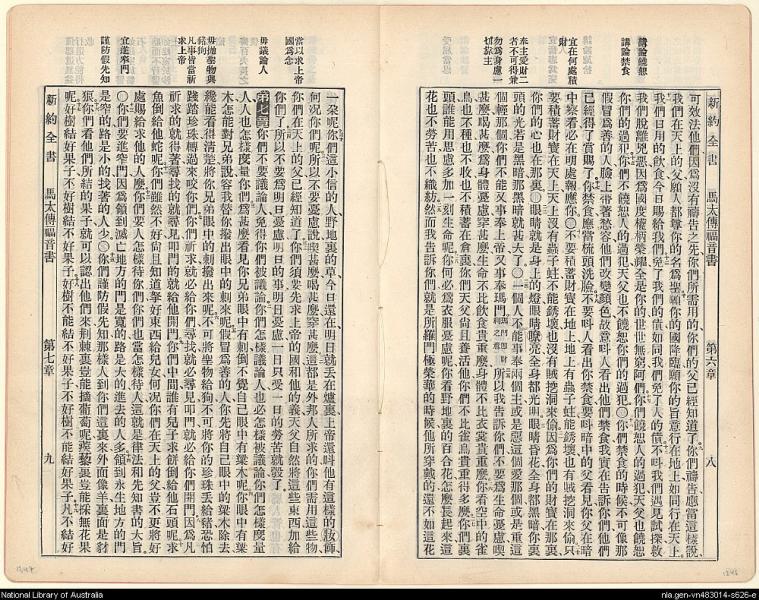 論禱告
講論禁食
宜在何處積財
奉主受財二者不可得兼
勿為身慮一切靠主
新約全書 馬太傳福音書 第六章 八
可效法他們因爲沒有禱告之先你們所需用的你們的父已經知道了你們禱告應當這樣說
我們在天上的父願人都尊你的名爲聖願你的國降臨願你的旨意行在地上如同行在天上
我們日用的飲食今日賜給我們免了我們的債如同我們免了人的債不叫我們遇見試探救
我們脫離兇惡因爲國度權柄榮耀全是你的世世無窮阿們你們饒恕人的過犯天父也饒恕
你們的過犯你們不饒恕人的過犯天父也不饒恕你們的過犯○你們禁食的時候不可像那
假冒爲善的人臉上帶著愁容他們改變顏色故意叫人看出他們禁食我實在告訴你們他們
已經得了賞賜了你禁食應當梳頭洗臉不要叫人看出你禁食要叫暗中的父看見你父在暗
中察看必在明處報應你○不要積蓄財寶在地上地上有蟲子蛀能銹壞也有賊挖洞來偷只
要積蓄財寶在天上天上沒有蟲子蛀不能銹壞也沒有賊挖洞來偷因爲你們的財寶在那裏
你們的心也在那裏○眼睛就是身上的燈眼睛瞭亮全身都光明眼睛昏花全身都黑暗你裏
頭的光若是黑暗那黑暗就甚大了○一個人不能事奉兩個主或是惡這個愛那個或是重這
個輕那個你們不能又事奉上帝又事奉瑪門
所以我告訴你們不要爲生命憂慮
甚麼喝甚麼爲身體憂慮穿甚麼生命不比飲食貴重麼身體不比衣裳貴重麼你看空中的雀
鳥也不種也不收也不積蓄在倉裏你們天父尙且養活他你們不比雀鳥貴重得多麼你們裏
頭誰能用思慮多加一刻生命呢你何必爲衣服憂慮呢你看野地裏的百合花怎麼長起來這
花也不勞苦也不織紡然而我告訴你們就是所羅門極榮華的時候他所穿戴的還不如這花
當以求上帝國爲念
毋議論人
毋拋聖物與豬狗
凡事皆當祈求上帝
宜進窄門
謹防假先知
一朵呢你們這小信的人野地裏的草今日還在明日就丟在爐裏上帝還叫他有這樣的妝飾
何况你們呢所以不要憂慮說喫甚麼喝甚麼穿甚麼這都是外邦人所求的你們需用這些物
你們在天上的父已經知道了你們須要先求上帝的國和他的義天父自然將這些東西加給
你們了所以不要爲明日憂慮明日的事明日憂慮一日只受一日的勞苦就彀了
第七章 你們不要議論人免得你們被議論你們怎樣議論人也必怎樣被議論你們怎樣度量
人人也怎樣度量你們爲甚麼看見你兄弟眼中有刺倒不覺自己眼中有梁木呢你眼中有梁
木怎能對兄弟說容我替你撥出眼中的刺來呢假冒爲善的人你先將自己眼中的梁木除去
纔能看得清楚將你兄弟眼中的刺撥出來呢不可將聖物給狗不可將你的珍珠丟給豬恐怕
踐踏珍珠轉過來咬你們你們祈求就必給你們尋找就必尋見叩門就必給你們開門因爲凡
祈求的就得著尋找的就尋見叩門的就給他開門你們中間誰有兒子求餠倒給他石頭呢求
魚倒給他蛇呢你們雖然不好尙且知道拏好東西給兒女何况你們在天上的父豈不更將好
處賜給求他的人麼你們要人怎樣待你們你們也當怎樣待人這就是律法和先知書的大旨
○你們要進窄門因爲領到滅亡地方的門是寬的路是大的進去的人多領到永生地方的門
是窄的路是小的找著的人少○你們謹防假先知那樣人到你們這裏來外面像羊裏面是豺
狼你們看他們所結的果子就可以認出他們來荆棘裏豈能摘葡萄呢蒺藜裏豈能採無花果
呢好樹結好果子不好樹結不好果子好樹不能結不好果子不好樹不能結好果子凡不結好
新約全書 馬太傳福音書 第七章 九
National Library of Australia
nla.gen-vn483014-s626-e